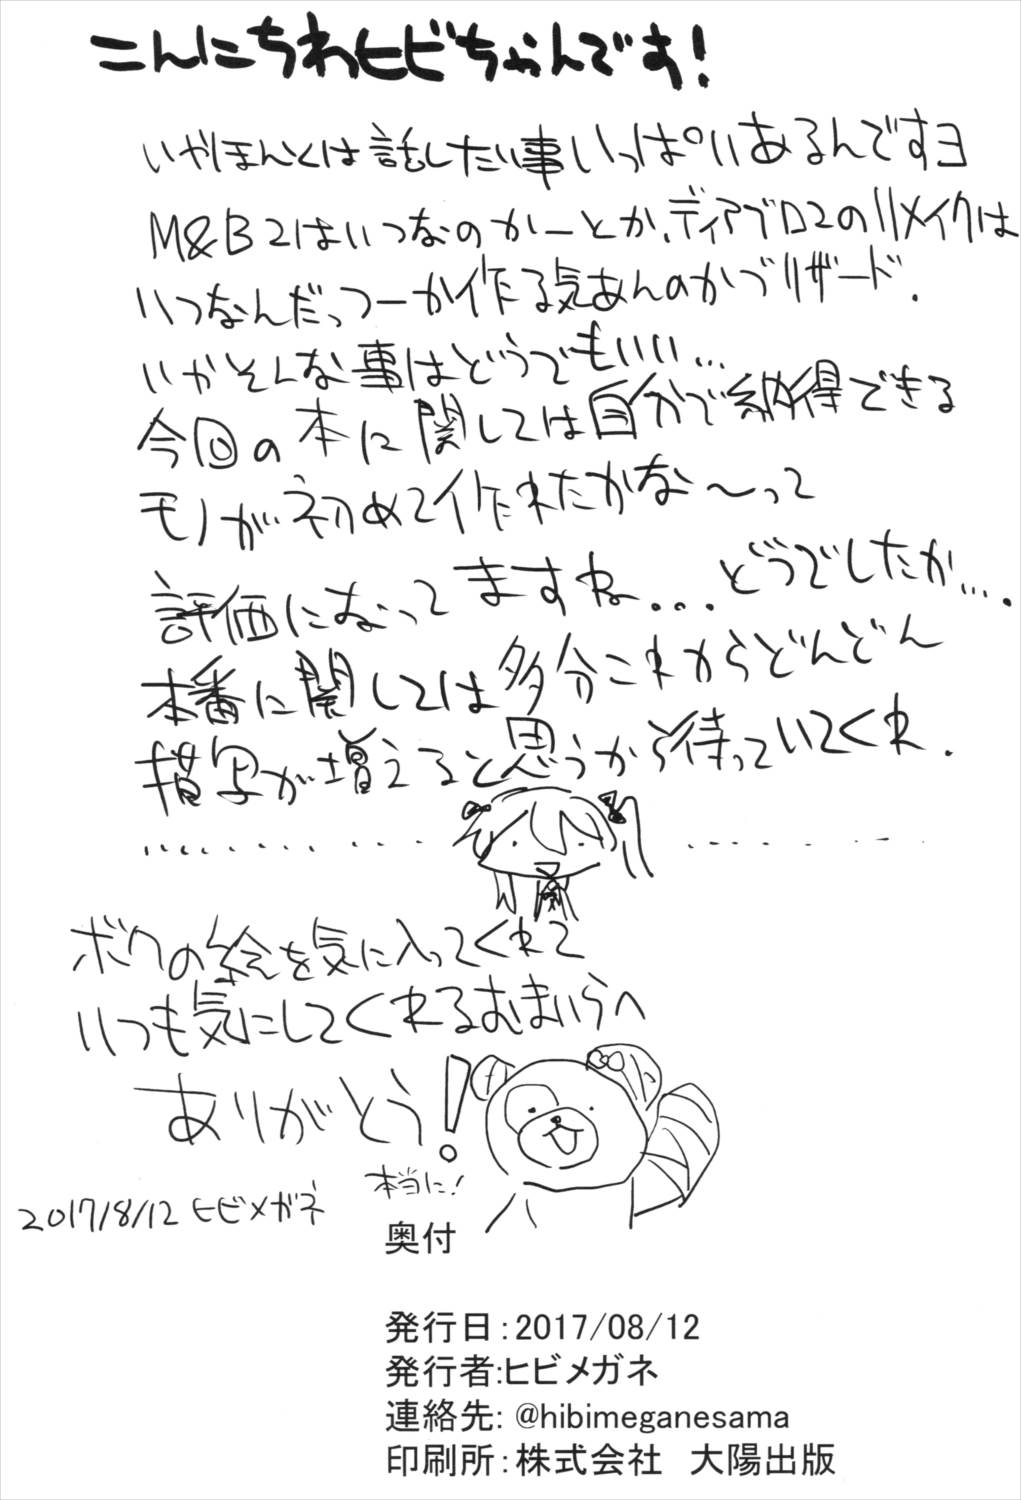 こんにちわヒビちゃんです!
いやほんとは話したい事いっぱいあるんですヨ
M&B2はいつなのかーとか、ディアブロ2のリメイクは
いつなんだっつーか作る気あんのかブリザード.
いやそんな事はどうでもいい...
今回の本に関しては自分で納得できる
モノが初めて作れたかな〜って
評価になってますね...どうでしたか....
本番に関しては多分これからどんどん
描写が増えると思うから待っていてくれ.
ボクの絵を気に入ってくれて
いつも気にしてくれるおまいらへ
ありがとう!
本当に!
2017/8/12 ヒビメガネ
奥付
発行日:2017/08/12
発行者:ヒビメガネ
連絡先: @hibimeganesama
印刷所:株式会社 大陽出版